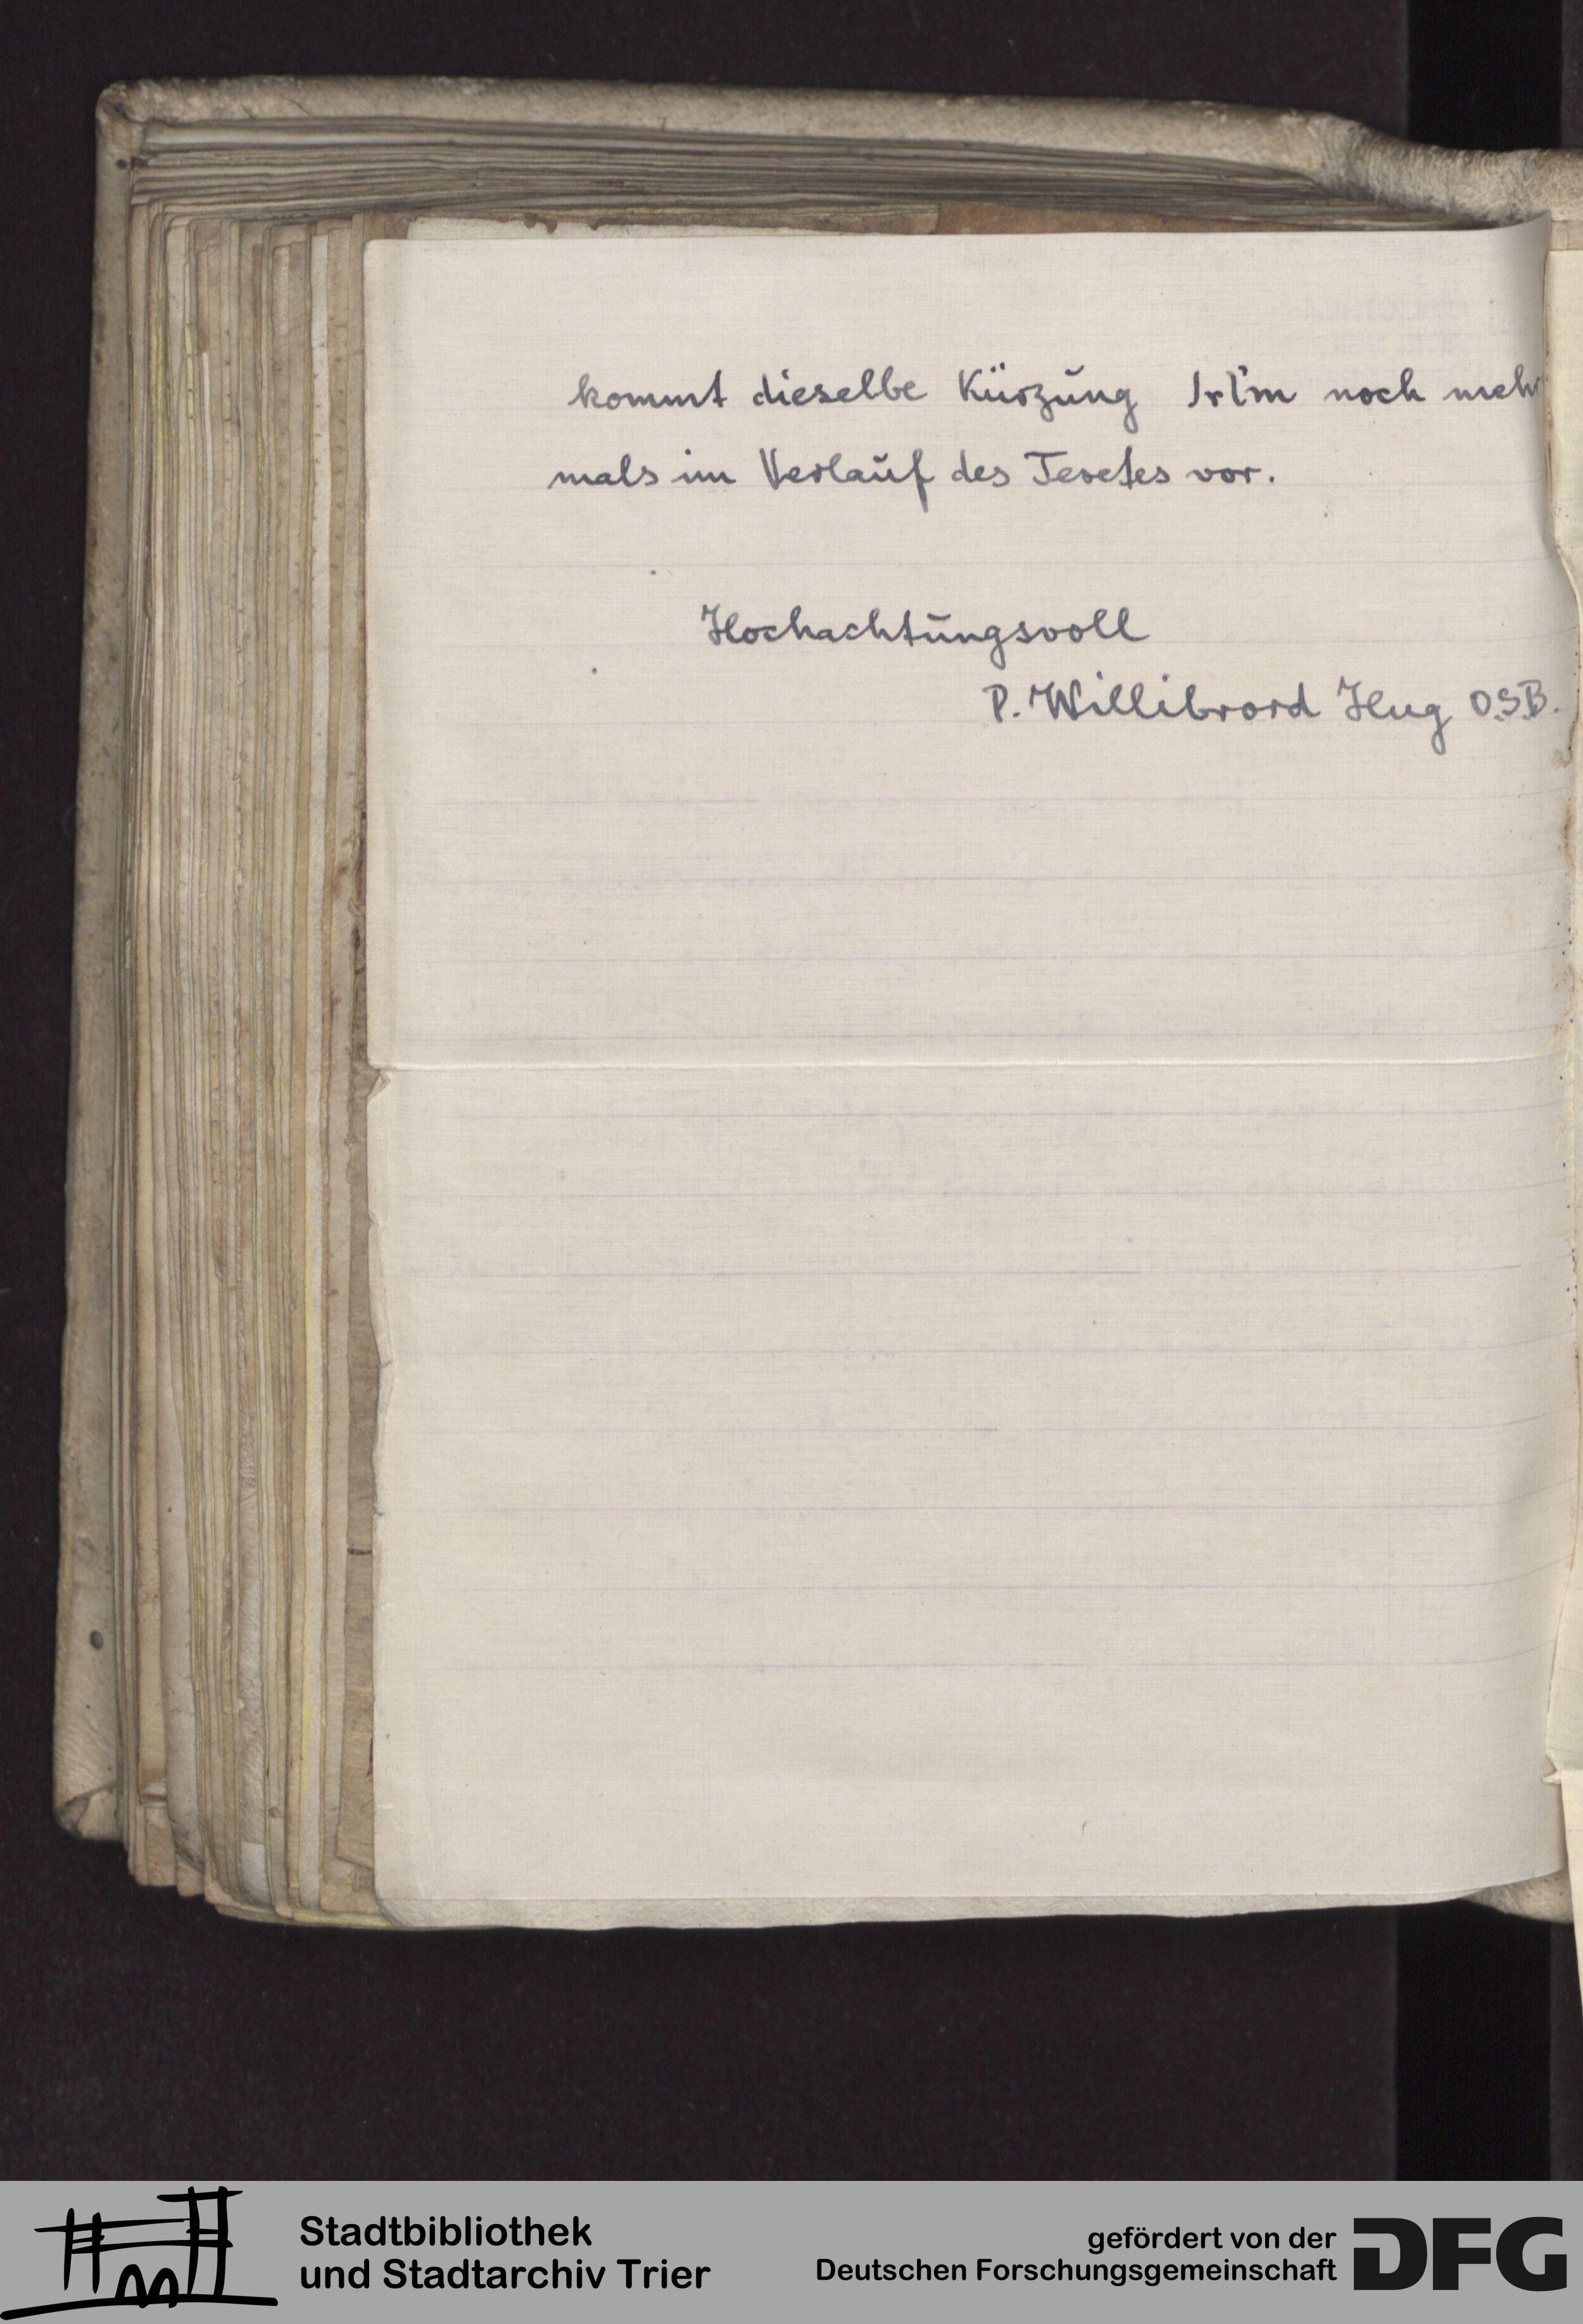 kommt dieselbe Kürzung noch mehr
mals im Verlauf des Textes vor.
Hochachtungsvoll
P. Willibrord Hug O.S.B.
Stadtbibliothek
und Stadtarchiv Trier
gefördert von der
Deutschen Forschungsgemeinschaft
DFG